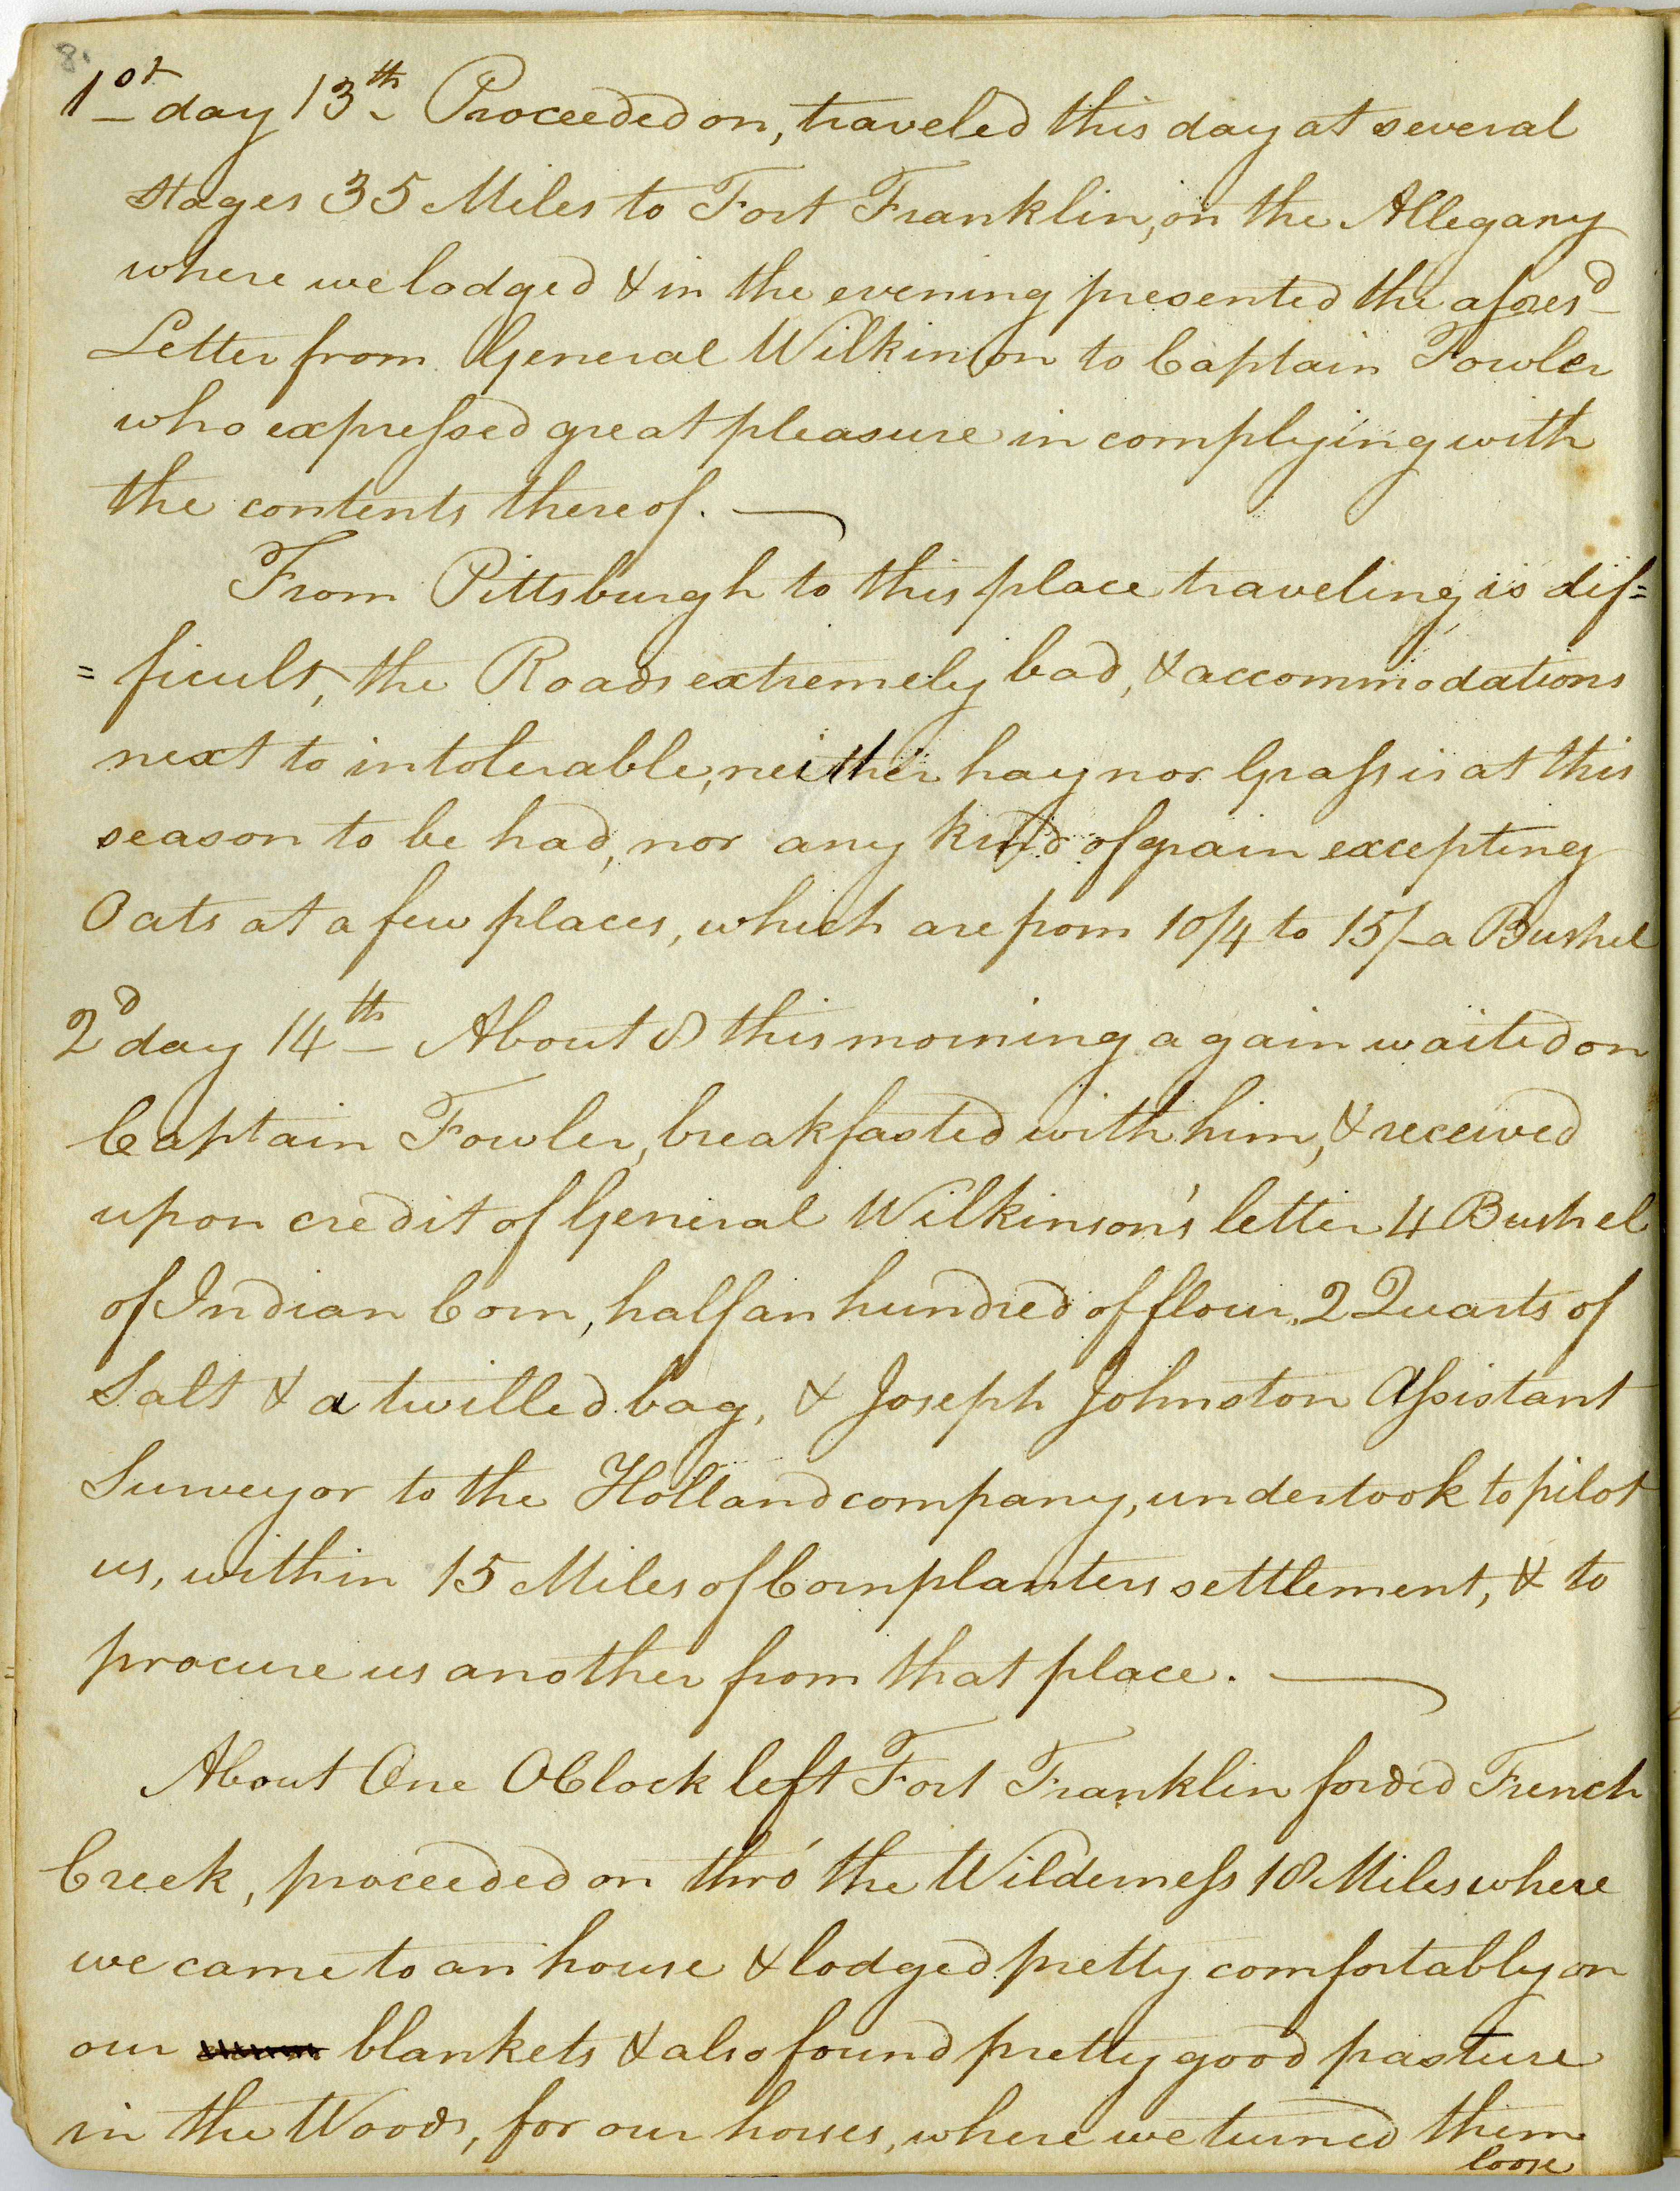 8.
1st day 13th Proceeded on, traveled this day at several
stages 35 Miles to Fort Franklin, on the Allegany
where we lodged & in the evening presented the aforesd
Letter from General Wilkinson to Captain Fowler
who expressed great pleasure in complying with
the contents thereof. —
From Pittsburgh to this place traveling is dif=
=ficult, the Roads extremely bad, & accommodations
next to intolerable, neither hay nor Grass is at this
season to be had, nor any kind of grain excepting
Oats at a few places, which are from 10/4 to 15/- a Bushel
2d day 14th – About 8 this morning again waited on
Captain Fowler, breakfasted with him, & received
upon credit of General Wilkinson's letter 4 Bushel
of Indian Corn, half an hundred of flour, 2 Quarts of
Salt & a twilled bag, & Joseph Johnston Assistant
Surveyor to the Holland company, undertook to pilot
us, within 15 Miles of Cornplanters settlement, & to
procure us another from that place. —
About One OClock left Fort Franklin forded French
Creek, proceeded on thro' the Wilderness 18 Miles where
we came to an house & lodged pretty comfortably on
our blankets & also found pretty good pasture
in the Woods, for our horses, where we turned them
loose